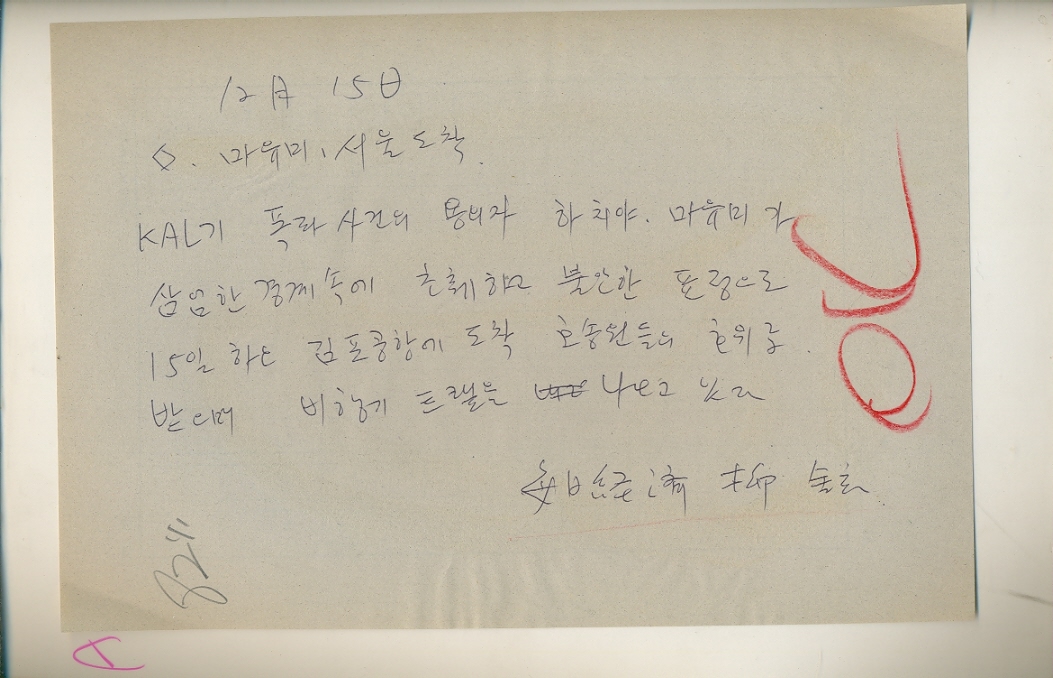 12月 15日
◇. 마유미, 서울 도착.
KAL기 폭파사건의 용의자 하치야. 마유미가
삼엄한 경계속에 초췌하고 불안한 표정으로
15일 하오 김포공항에 도착 호송원들의 호위를
받으며 비행기 트랩을 나오고 있다
每日経済 柳
OK